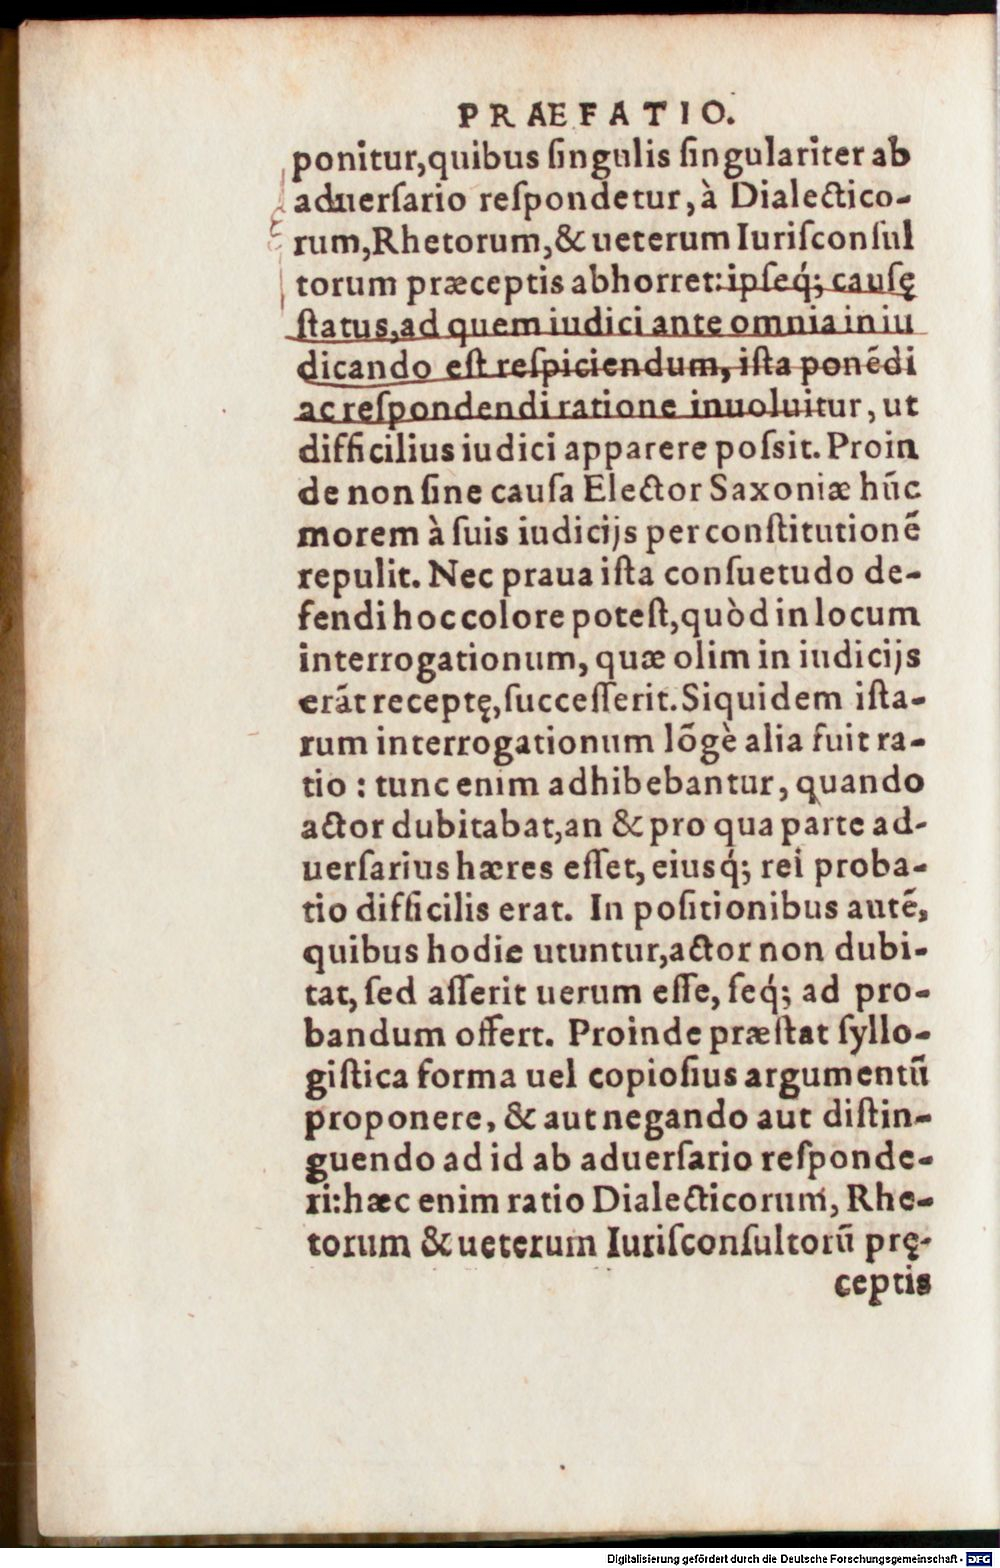 PRAEFATIO.
ponitur,quibus ſingulis ſingulariter ab
aduerſario reſpondetur, à Dialectico-
rum,Rhetorum,& ueterum Iuriſconſul
torum præceptis abhorret: ipſeq́; cauſę
ſtatus,ad quem iudici ante omnia in iu
dicando eſt reſpiciendum, iſta ponẽdi
ac reſpondendi ratione inuoluitur, ut
difficilius iudici apparere poſsit. Proin
de non ſine cauſa Elector Saxoniæ hũc
morem à ſuis iudicijs per conſtitutionẽ
repulit. Nec praua iſta conſuetudo de-
fendi hoc colore poteſt,quòd in locum
interrogationum, quæ olim in iudicijs
erãt receptę,ſucceſſerit. Siquidem iſta-
rum interrogationum lõgè alia fuit ra-
tio : tunc enim adhibebantur, quando
actor dubitabat,an & pro qua parte ad-
uerſarius hæres eſſet, eiusq́; rei proba-
tio difficilis erat. In poſitionibus autẽ,
quibus hodie utuntur,actor non dubi-
tat, ſed aſſerit uerum eſſe, ſeq́; ad pro-
bandum offert. Proinde præſtat ſyllo-
giſtica forma uel copioſius argumentũ
proponere, & aut negando aut diſtin-
guendo ad id ab aduerſario reſponde-
ri: hæc enim ratio Dialecticorum, Rhe-
torum & ueterum Iuriſconſultorũ prę-
ceptis
Digitalisierung gefördert durch die Deutsche Forschungsgemeinschaft - DFG